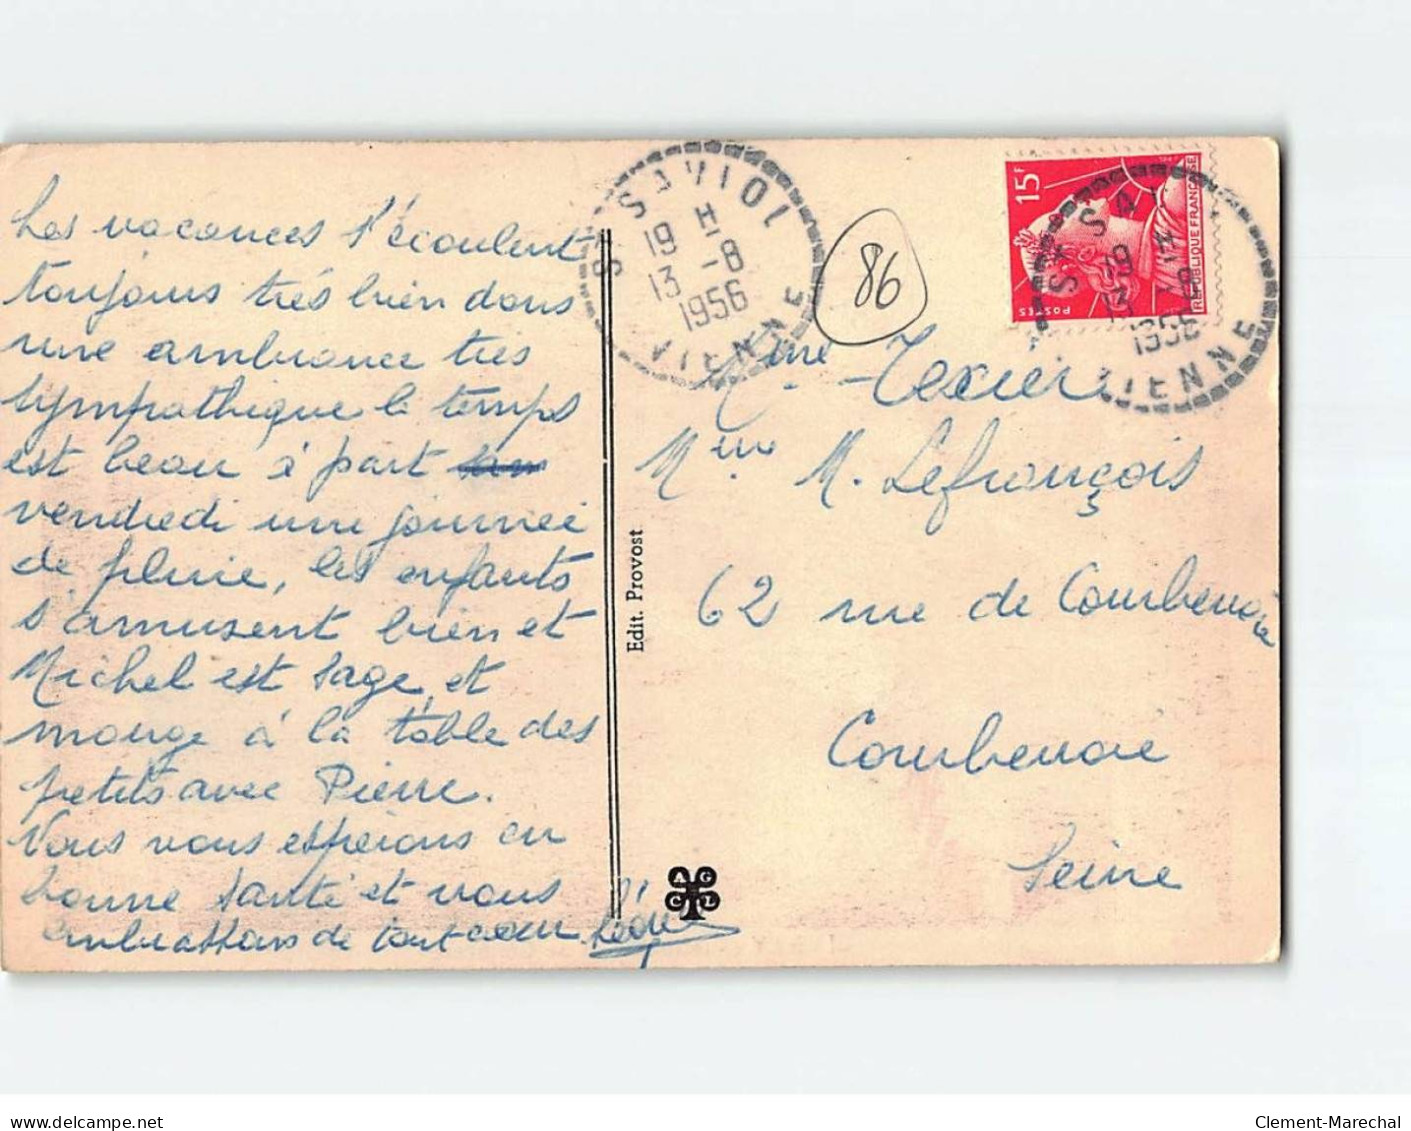 Les vacances s'écoulent
toujours très bien dans
une ambiance très
sympathique le temps
est beau à part
vendredi une journée
de pluie, les enfants
s'amusent bien et
Michel est sage, et
mange à la table des
petits avec Pierre.
Nous vous espérons en
bonne santé et vous
embrassons de tout coeur
Edit. Provost
AGCL
ST SAVIOL
19 H
13 -8
1956
VIENNE
86
15F
POSTES
REPUBLIQUE FRANÇAISE
ST SAVI
19 H
13 -8
1956
VIENNE
Mme Texier
Mme M. Lefrançois
62 rue de Courbevoie
Courbevoie
Seine
www.delcampe.net
Clement-Marechal